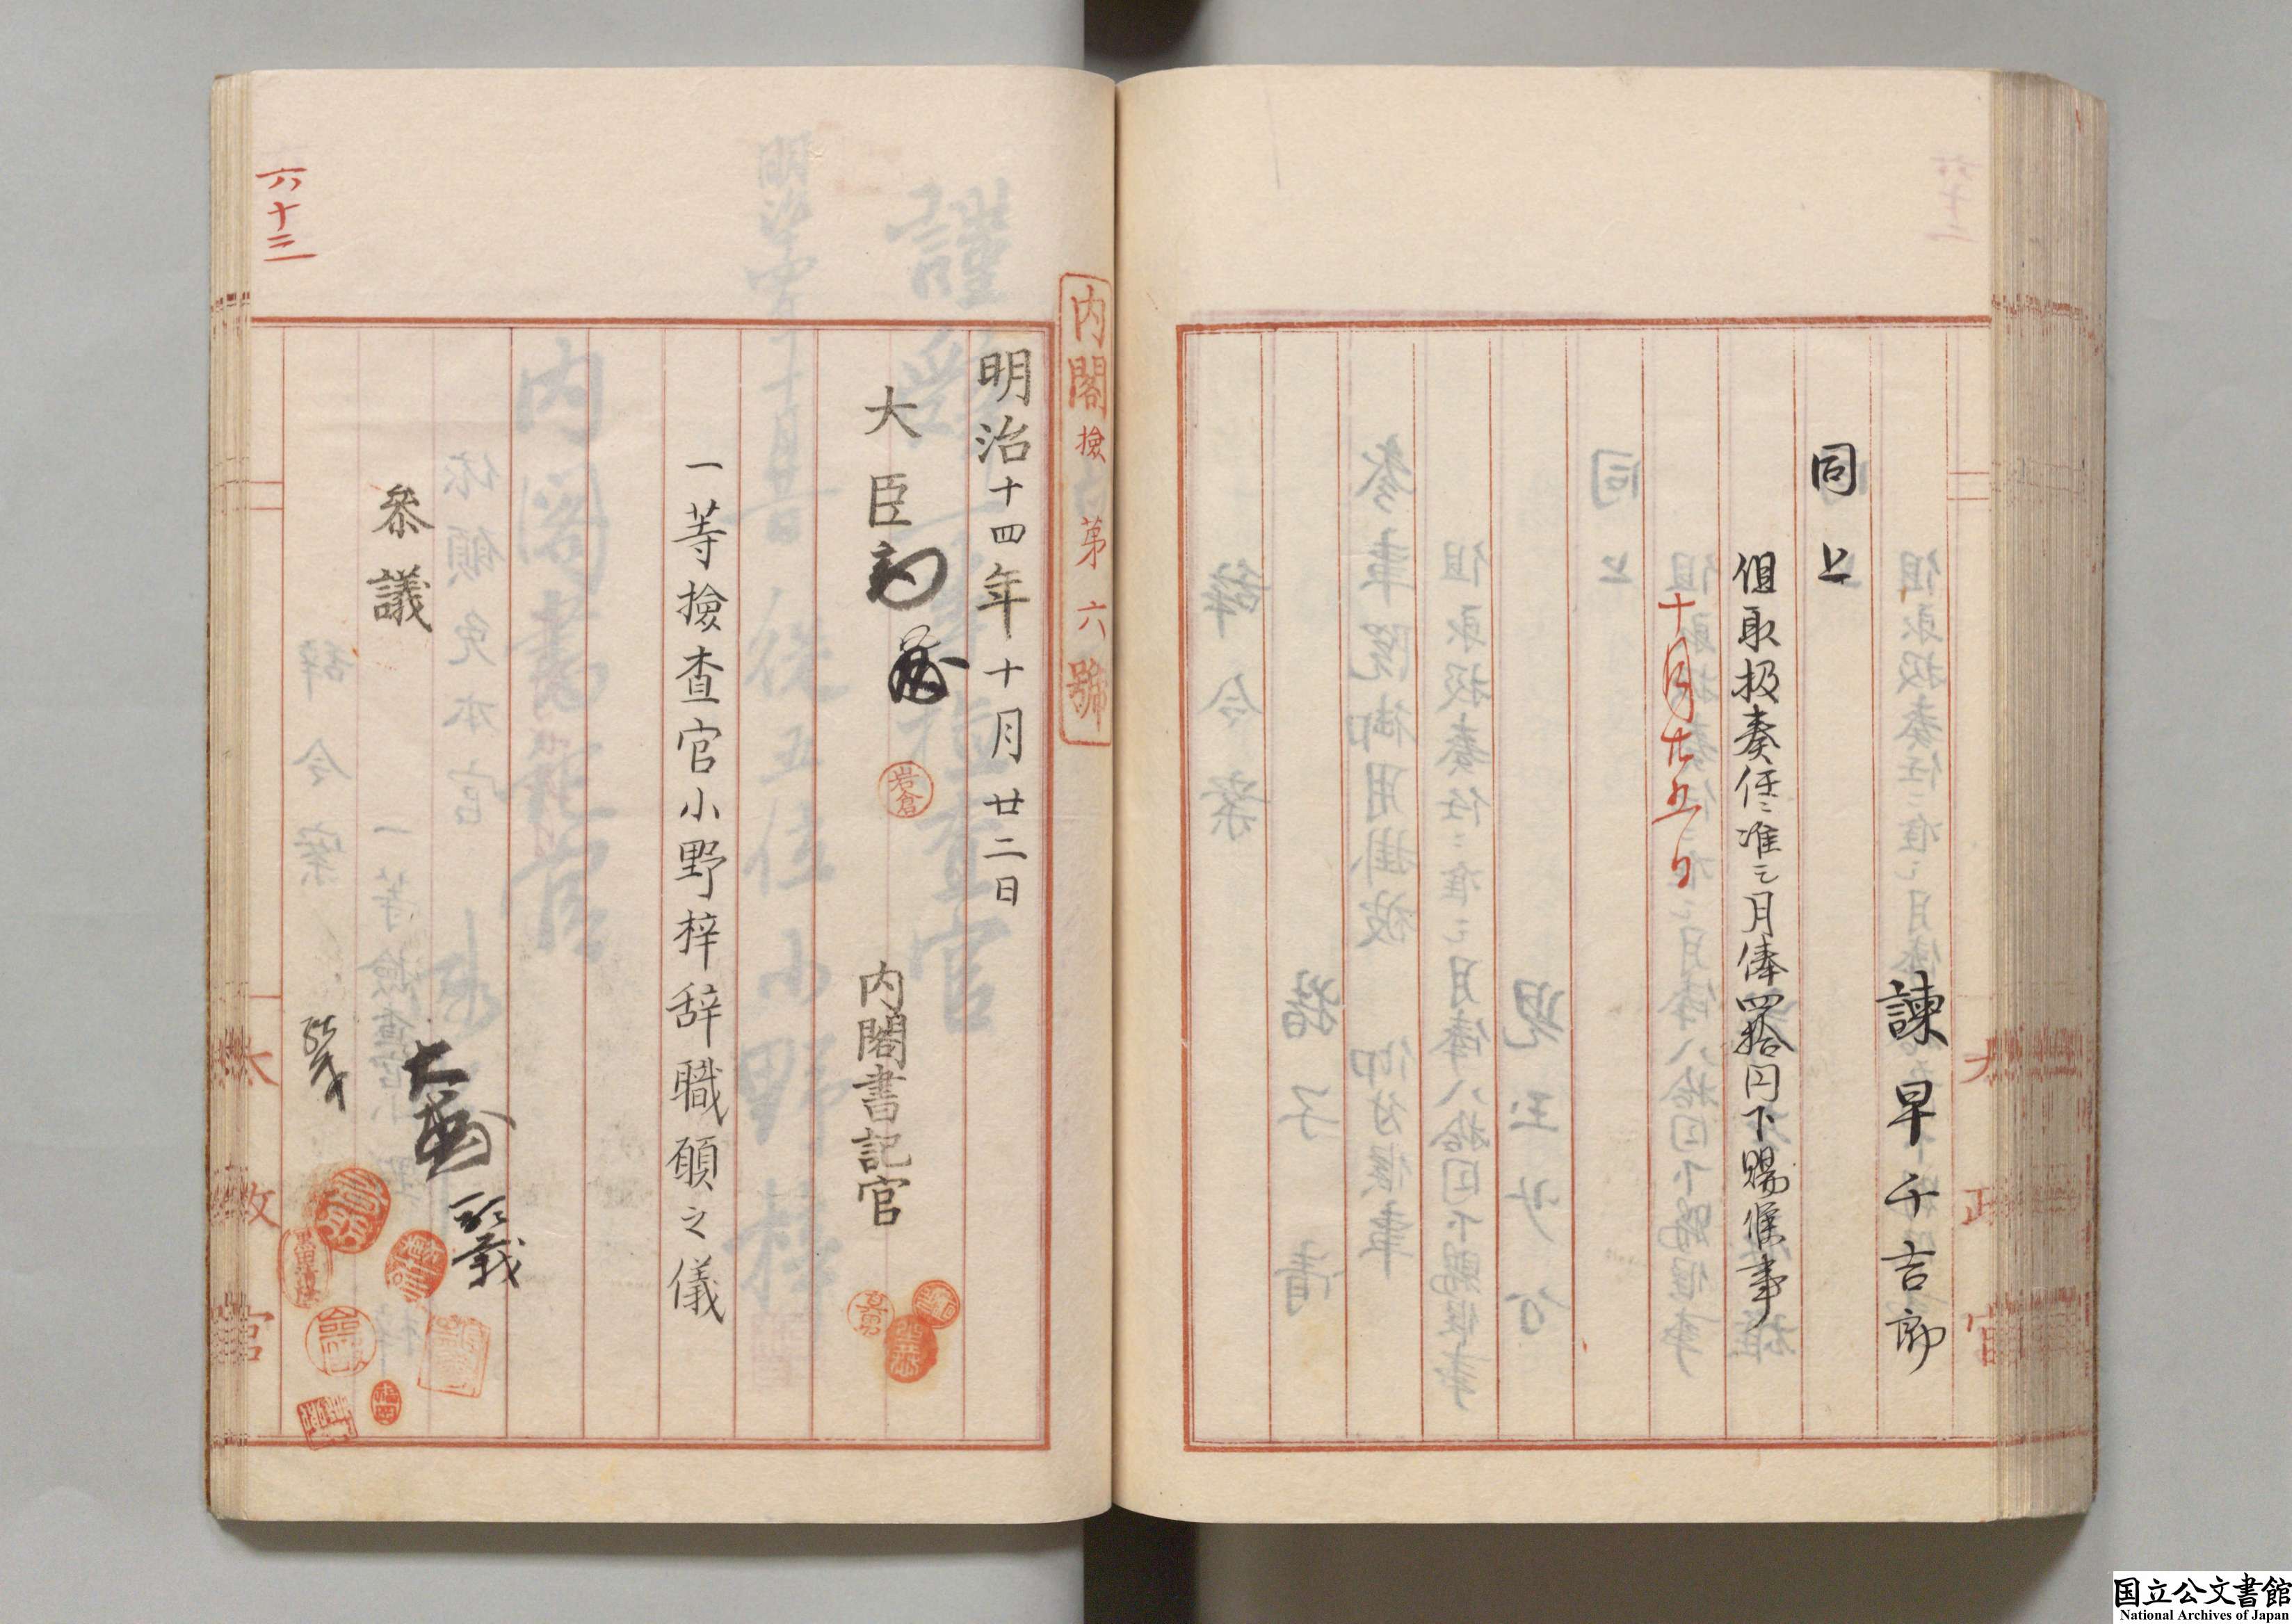 諫早千吉郎
同上
但取扱奏任ニ准シ月俸四拾円下賜候事
十月廿五日
太政官
内閣撿第六號
明治十四年十月廿二日
大臣
岩倉
内閣書記官
一等撿查官小野梓辞職願之儀
参議
六十三
太政官
国立公文書館
National Archives of Japan